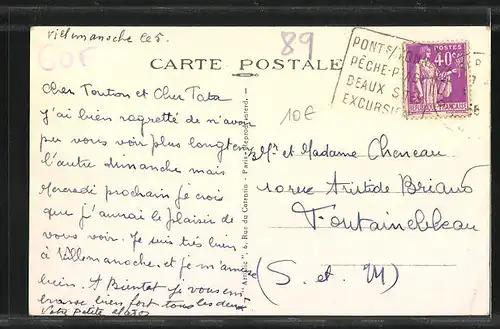 Villemanoche le 5.
60F
89
CARTE POSTALE
10€
PONTS/YONNE
PÊCHE
DEAUX S
EXCURSI
POSTES
40c
Cher Tonton et Cher Tata
J'ai bien regretté de n'avoir
pu vous voir plus longtemps
l'autre dimanche mais
Mercredi prochain je crois
que j'aurai le plaisir de
vous voir. Je suis très bien
à Villemanoche, et je m'amuse
bien. A Bientôt Je vous en
brasse bien fort tous les deux
Votre petite
"Artistic", 6, Rue du Cotentin - Paris
Mr et Madame Cheneau
10 rue Aristide Briand
Fontainebleau
(S. et M)